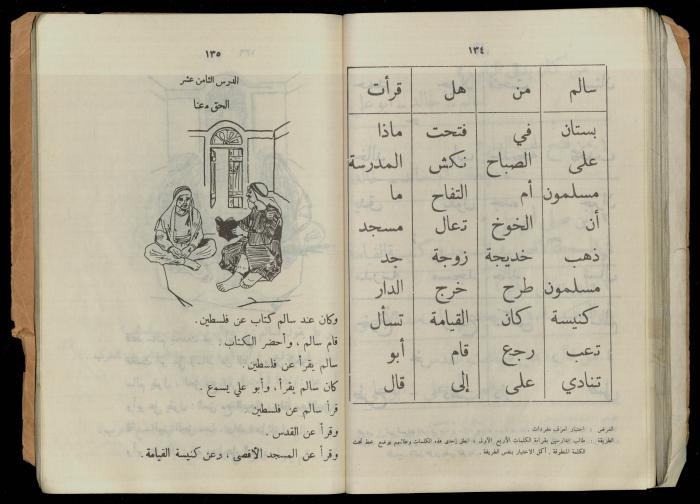 ١٣٤
سالم من هل قرأت
بستان في فتحت ماذا
على الصباح نكش المدرسة
مسلمون أم التفاح ما
أن الخوخ تعال مسجد
ذهب خديجة زوجة جد
مسلمون طرح خرج الدار
كنيسة كان القيامة تسأل
تعب رجع قام أبو
تنادي على إلى قال
الغرض : اختبار لعرف مفردات .
الطريقة : طالب الدارسين بقراءة الكلمات الأربع الأولى ، انطق إحدى هذه الكلمات وطالبهم بوضع خط تحت
الكلمة المنطوقة . أكمل الاختبار بنفس الطريقة .
١٣٥
الدرس الثامن عشر
الحق معنا
وكان عند سالم كتاب عن فلسطين .
قام سالم ، وأحضر الكتاب .
سالم يقرأ عن فلسطين .
كان سالم يقرأ ، وأبو علي يسمع .
قرأ سالم عن فلسطين
وقرأ عن القدس .
وقرأ عن المسجد الأقصى ، وعن كنيسة القيامة .